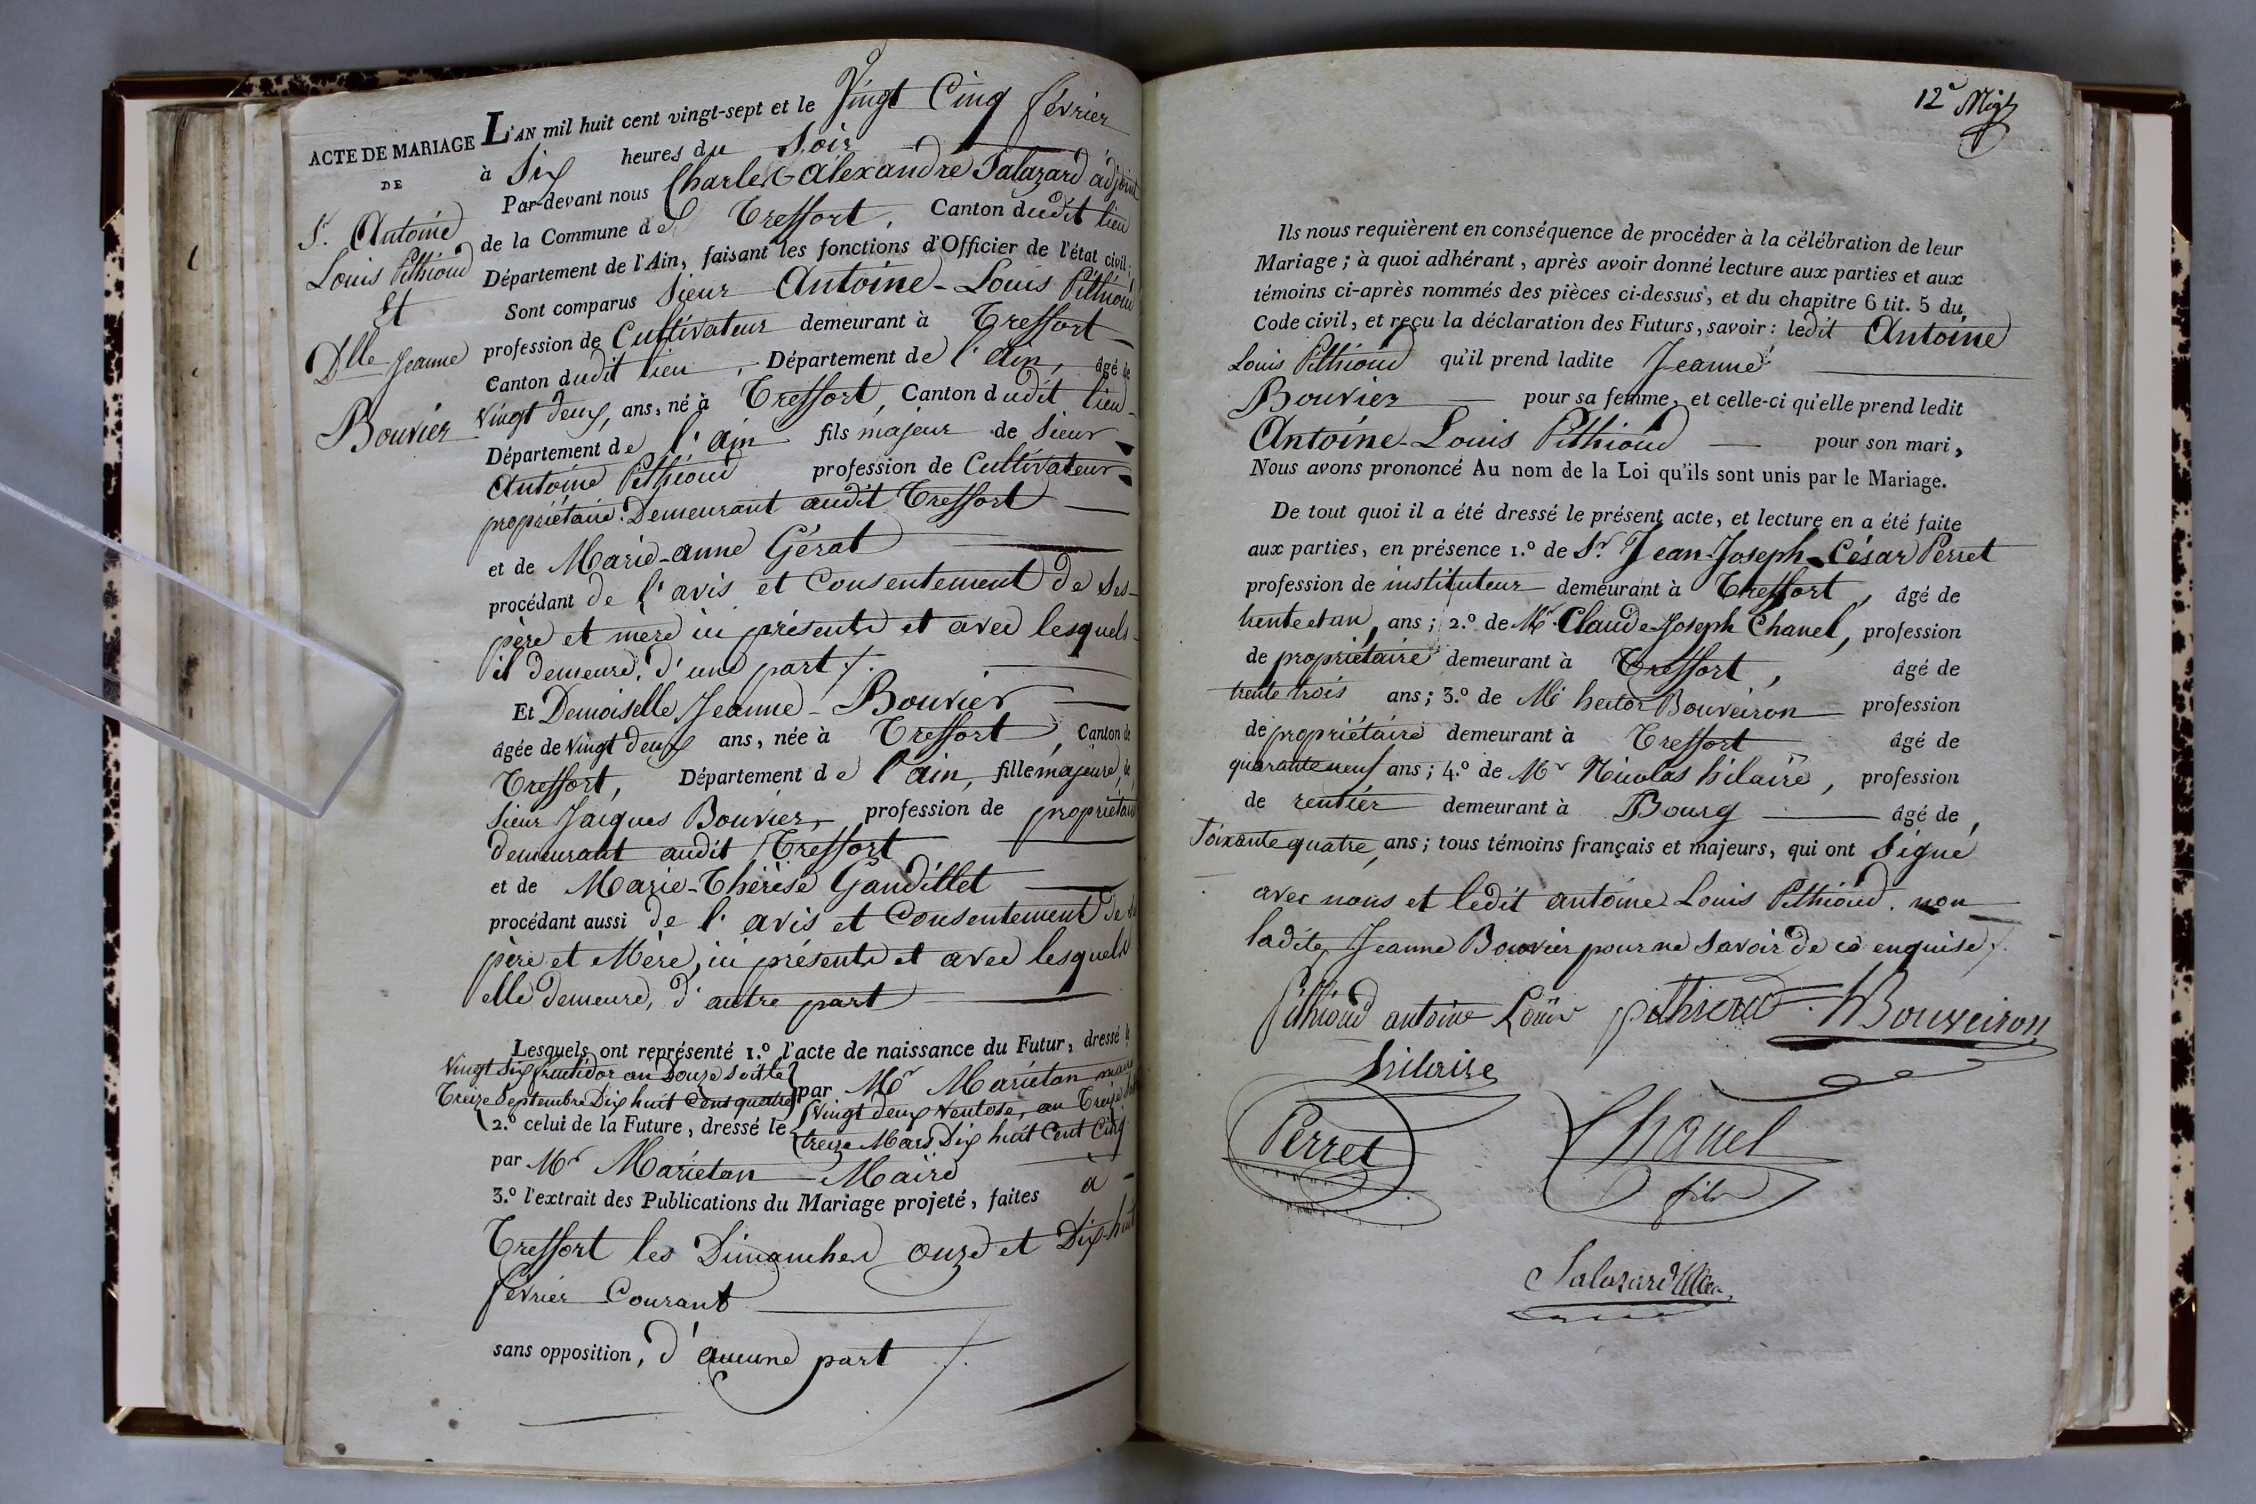 ACTE DE MARIAGE
DE
Sr. Antoine
Louis Pithioud
Et
Dlle Jeanne
Bouvier
L'AN mil huit cent vingt-sept et le Vingt Cinq février
à Six heures du Soir
Par-devant nous Charles Alexandre Salazard adjoint
de la Commune de Treffort, Canton dudit lieu
Département de l'Ain, faisant les fonctions d'Officier de l'état civil;
Sont comparus Sieur Antoine-Louis Pithioud
profession de Cultivateur demeurant à Treffort
Canton dudit lieu, Département de l'ain, âgé de
vingt deux, ans, né à Treffort, Canton dudit lieu
Département de l'ain fils majeur de Sieur
Antoine Pithioud profession de Cultivateur
propriétaire Demeurant audit Treffort
et de Marie-anne Gérat
procédant de l'avis et Consentement de Ses
père et mere ici présents et avec lesquels
il demeure, d'une part /.
Et Demoiselle Jeanne-Bouvier
âgée de vingt deux ans, née à Treffort, Canton de
Treffort, Département de l'ain, fille majeure, de
Sieur Jacques Bouvier, profession de propriétaire
demeurant audit Treffort
et de Marie-Thérèse Gaudillet
procédant aussi de l'avis et Consentement de
père et Mère, ici présents et avec lesquels
elle demeure, d'autre part
Lesquels ont représenté 1.º l'acte de naissance du Futur, dressé le
vingt Six fructidor an Douze Soit le
Treize Septembre Dix huit Cent quatre par Mr Mariétan maire
2.º celui de la Future, dressé le vingt deux Ventose, an Treize
treize Mars Dix huit Cent Cinq
par Mr Mariétan Maire
3.º l'extrait des Publications du Mariage projeté, faites à
Treffort les Dimanches onze et Dix-huit
février Courant
sans opposition, d'aucune part /.
12e Mge
Ils nous requièrent en conséquence de procéder à la célébration de leur
Mariage; à quoi adhérant, après avoir donné lecture aux parties et aux
témoins ci-après nommés des pièces ci-dessus, et du chapitre 6 tit. 5 du
Code civil, et reçu la déclaration des Futurs, savoir: ledit Antoine
Louis Pithioud qu'il prend ladite Jeanne
Bouvier pour sa femme, et celle-ci qu'elle prend ledit
Antoine-Louis Pithioud pour son mari,
Nous avons prononcé Au nom de la Loi qu'ils sont unis par le Mariage.
De tout quoi il a été dressé le présent acte, et lecture en a été faite
aux parties, en présence 1.º de Sr. Jean-Joseph-César Perret
profession de instituteur demeurant à Treffort, âgé de
trente et un, ans; 2.º de Mr Claude-Joseph Chanel, profession
de propriétaire demeurant à Treffort, âgé de
trente trois ans; 3.º de Mr hector Bouveiron profession
de propriétaire demeurant à Treffort âgé de
quarante neuf ans; 4.º de Mr Nicolas hilaire, profession
de rentier demeurant à Bourg âgé de
Soixante quatre, ans; tous témoins français et majeurs, qui ont Signé
avec nous et ledit antoine Louis Pithioud. non
ladite Jeanne Bouvier pour ne Savoir de ce enquise /.
Pithioud antoine Louis pithioud HBouveiron
hilaire
Perret Chanel
fils
Salazard